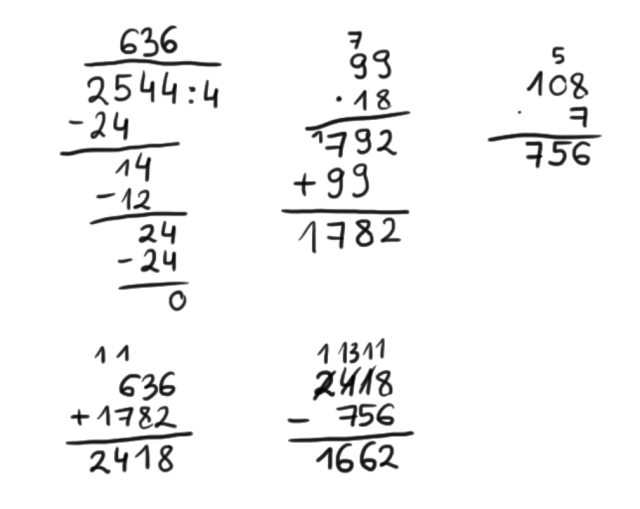 636
2544:4
-24
14
-12
24
-24
0
7
99
·18
1792
+99
1782
5
108
· 7
756
1 1
636
+1782
2418
1 13 11
2418
- 756
1662